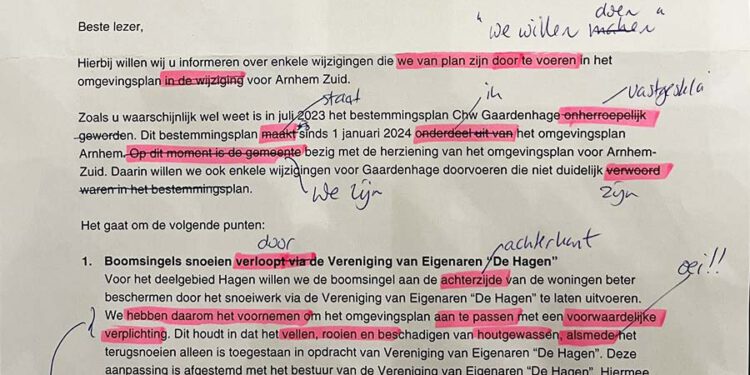 Beste lezer,
"we willen doen"
maken
Hierbij willen wij u informeren over enkele wijzigingen die we van plan zijn door te voeren in het
omgevingsplan in de wijziging voor Arnhem Zuid.
staat
in
Zoals u waarschijnlijk wel weet is in juli 2023 het bestemmingsplan Chw Gaardenhage onherroepelijk
geworden. Dit bestemmingsplan maakt sinds 1 januari 2024 onderdeel uit van het omgevingsplan
Arnhem. Op dit moment is de gemeente bezig met de herziening van het omgevingsplan voor Arnhem-
Zuid. Daarin willen we ook enkele wijzigingen voor Gaardenhage doorvoeren die niet duidelijk verwoord
waren in het bestemmingsplan.
we zijn
zijn
Het gaat om de volgende punten:
door
achterkant
1. Boomsingels snoeien verloopt via de Vereniging van Eigenaren "De Hagen"
oei!!
Voor het deelgebied Hagen willen we de boomsingel aan de achterzijde van de woningen beter
beschermen door het snoeiwerk via de Vereniging van Eigenaren "De Hagen" te laten uitvoeren.
We hebben daarom het voornemen om het omgevingsplan aan te passen met een voorwaardelijke
verplichting. Dit houdt in dat het vellen, rooien en beschadigen van houtgewassen, alsmede het
terugsnoeien alleen is toegestaan in opdracht van Vereniging van Eigenaren "De Hagen". Deze
aanpassing is afgestemd met het bestuur van de Vereniging van Eigenaren "De Hagen". Hiermee